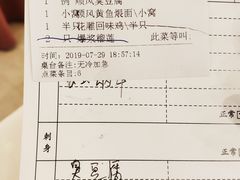 1 例 顺风臭豆腐
1 小窝顺风黄鱼煨面\小窝
1 半只花雕回味鸡\半只
2 只 爆浆榴莲 此菜等叫
时间：2019-07-29 18:57:14
桌台备注：无冷加急
点菜条目：6
正常
刺身
臭豆腐
正常